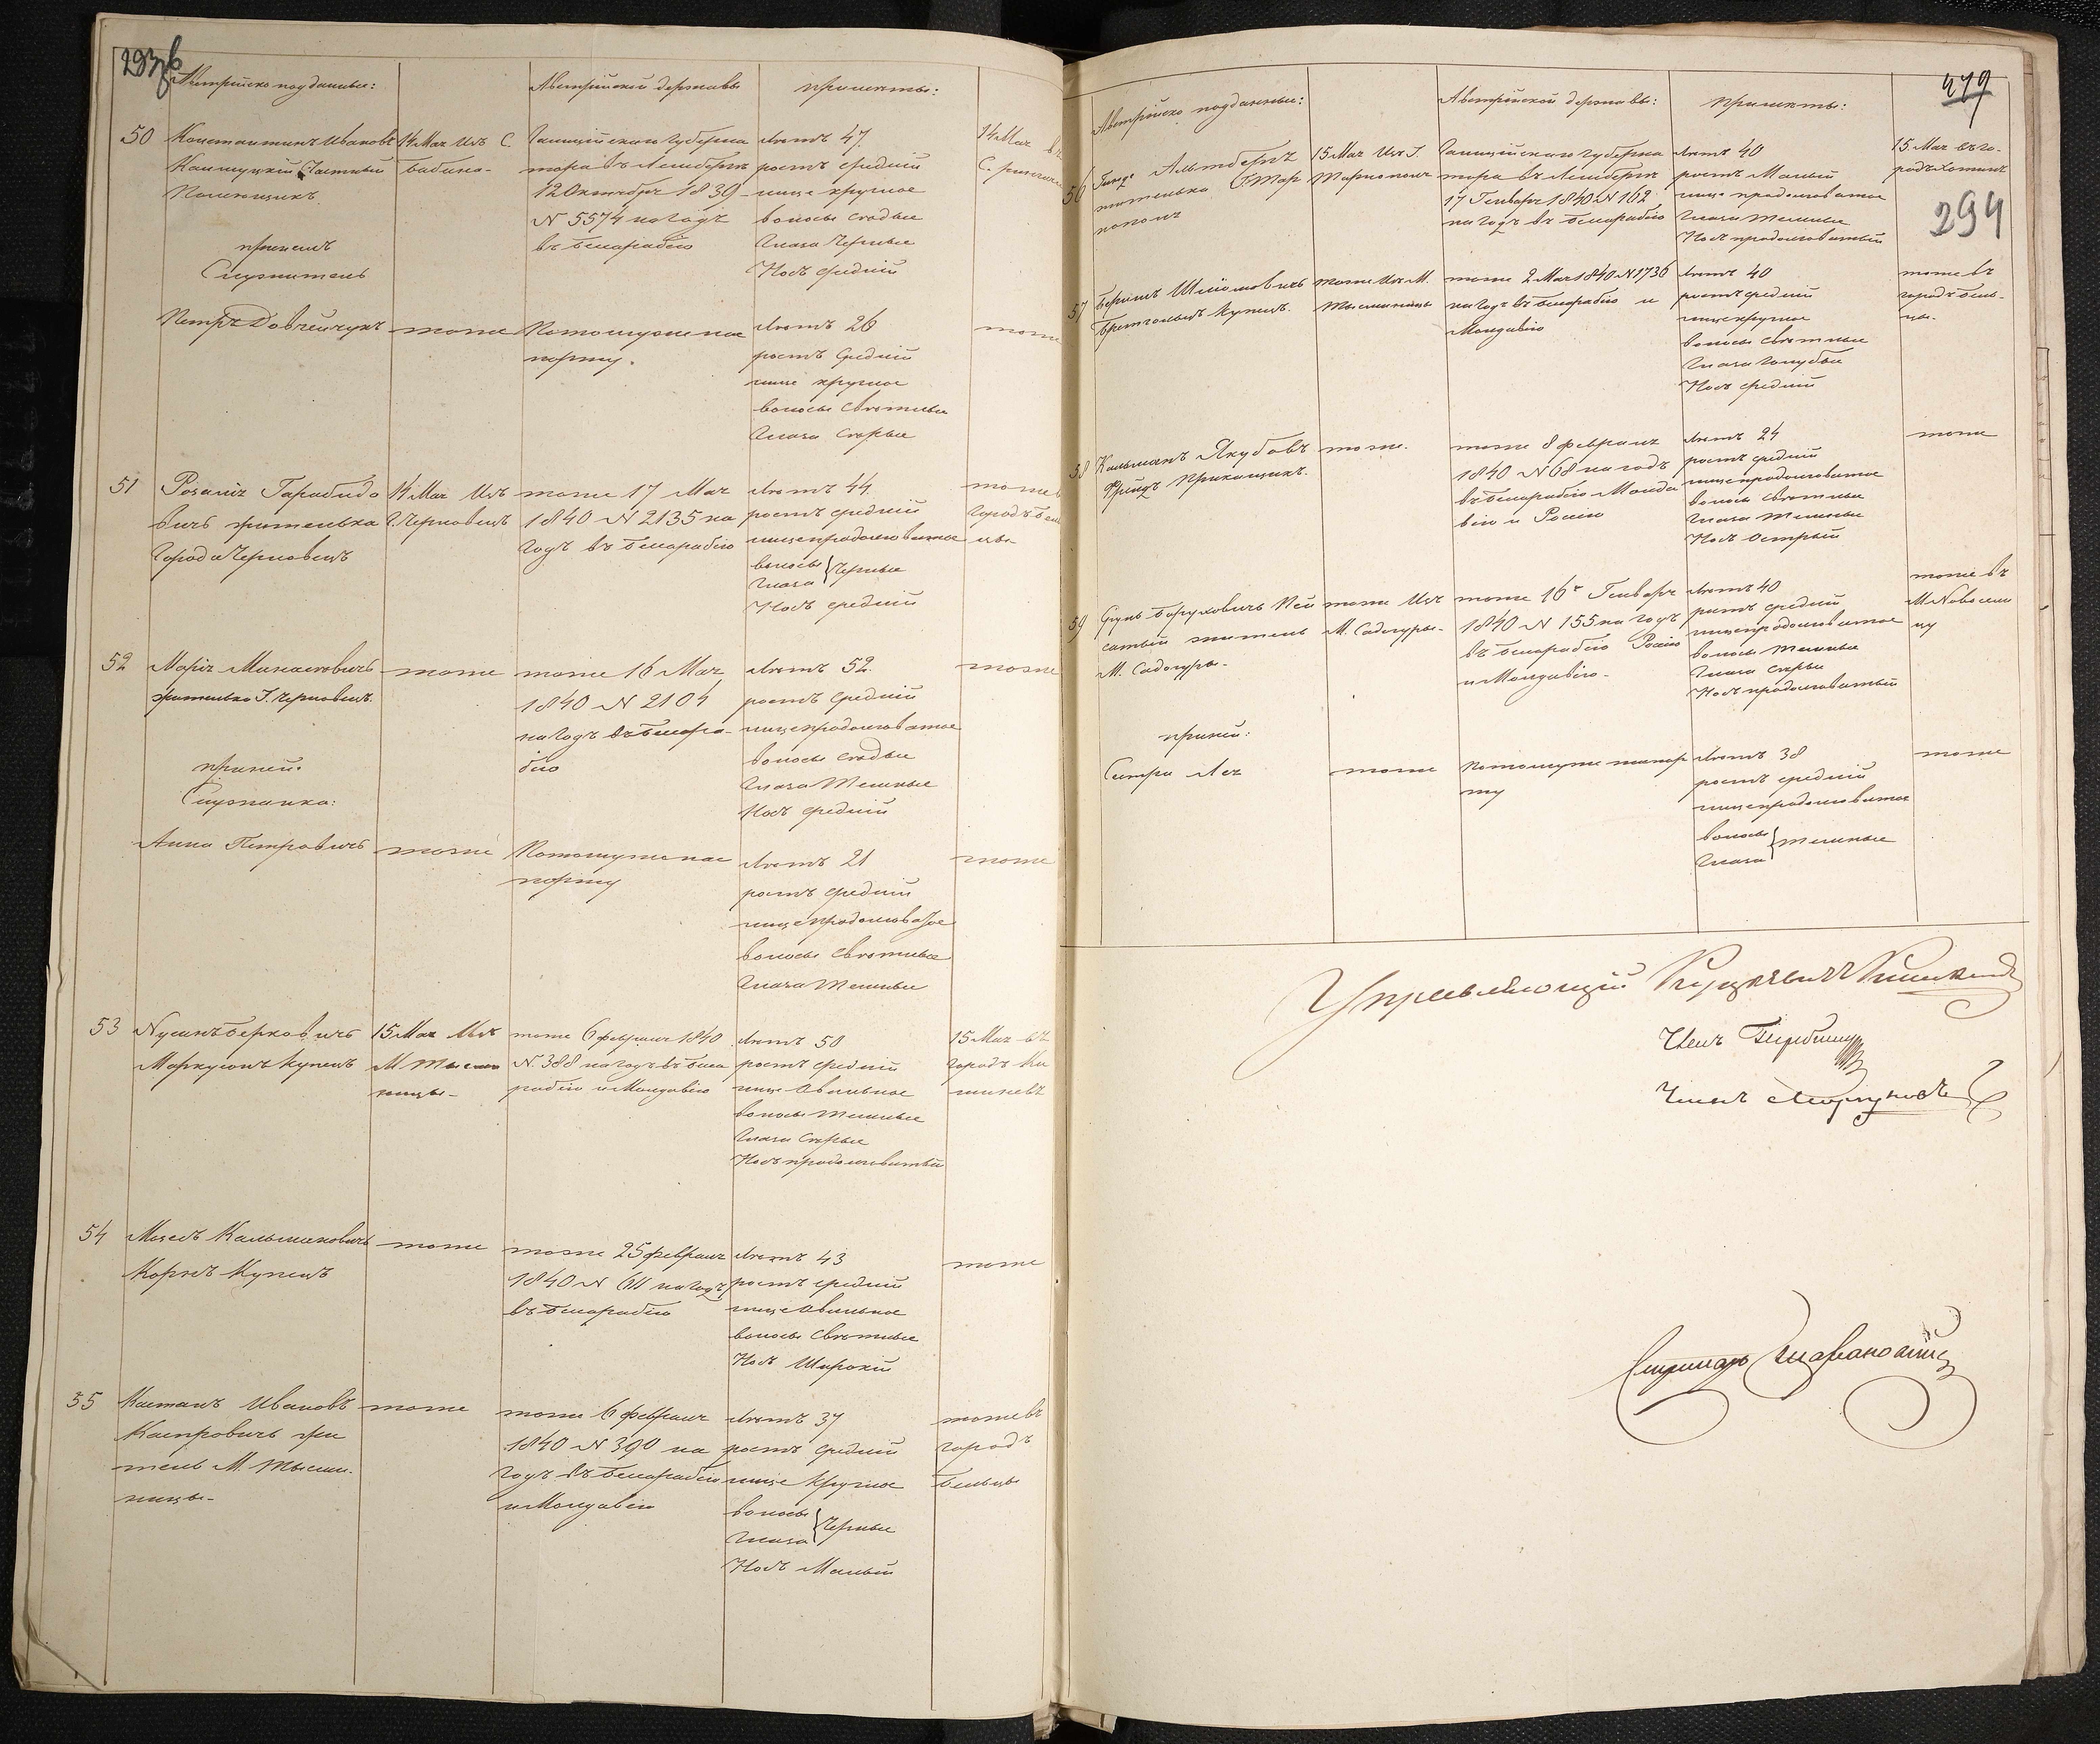 293об
Австрийско подданные:
Австрийской державы
приметы:
50 Константинъ Ивановъ
Каншуцкій Частный
Помещикъ
14 Мая Изъ С.
Бабина
Галиційскаго Губерна
тора въ Лемберге
12 Октября 1839
N 5574 на годъ
въ Бесарабію
Летъ 47.
ростъ средній
лице круглое
волосы седые
глаза черные
Носъ средній
14 Мая въ
С.
при немъ
Служитель
Петръ
тоже
По тому же пас
порту.
Летъ 26
ростъ Средній
лице круглое
волосы светлые
глаза серые
тоже
51 Розалія Гарабидо
вичъ жителька
Города Черновецъ
14 Мая Изъ
Г. Черновецъ
тоже 17 Мая
1840 N 2135 на
годъ въ Бесарабію
Летъ 44.
ростъ средній
лице продолговатое
волосы глаза } черные
Носъ средній
тоже въ
Городъ Бел
цы
52 Марія Минасовичъ
жителька Г. Черновецъ.
тоже
тоже 16 Мая
1840 N 2104
на годъ въ Бесара-
бію
Летъ 52.
ростъ средній
лице продолговатое
волосы седые
глаза темные
Носъ средній
тоже
при ней:
Служанка:
Анна Петровичъ
тоже
По тому же пас
порту
Летъ 21
ростъ средній
лице продолговатое
волосы светлые
глаза темные
тоже
53 Нусинъ Берковичъ
Маркусонъ Купецъ
15 Мая Изъ
М. Тысме
ницы-
тоже 6 февраля 1840
N. 388 на годъ въ Беса
рабію и Молдавію
Летъ 50
ростъ средній
лице овальное
волосы темные
глаза серые
Носъ продолговатый
15 Мая въ
городъ Ки
шиневъ
54 Мозесъ Кальмановичъ
Корнъ Купецъ
тоже
тоже 25 февраля
1840 N 611 на годъ
въ Бесарабію
Летъ 43
ростъ средній
лице овальное
волосы светлые
Носъ Широкій
тоже
55 Каетанъ Ивановъ
Каспровичъ жи
тель М. Тысме-
ницы-
тоже
тоже 6 февраля
1840 N 390 на
годъ въ Бесарабію
и Молдавію
Летъ 37
ростъ средній
лице круглое
волосы глаза } черные
Носъ Малый
тоже въ
городъ
Бельцы
279
294
Австрійско подданные:
Австрійской державы:
приметы:
56 Альтберг
жителька Г. Тар
нополя
15 Мая Изъ Г.
Тарнополя
Галиційскаго Губерна
тора въ Лемберге
17 Генваря 1840 N 162
на годъ въ Бесарабію
Летъ 40
ростъ Малый
лице продолговатое
глаза темные
Носъ продолговатый
15 Мая въ го-
родъ Хотинъ
57 Беришъ Шлиомовичъ
Бретгольцъ Купецъ.
тоже Изъ М.
Тысменицы
тоже 2 Мая 1840 N 1736
на годъ въ Бесарабію и
Молдавію
Летъ 40
ростъ средній
лице круглое
волосы светлые
глаза голубые
Носъ средній
тоже въ
городъ Бель-
цы.
58 Кальманъ Якубовъ
Фридъ Прикащикъ.
тоже.
тоже 8 февраля
1840 N 68 на годъ
въ Бесарабію Молда
вію и Росію
Летъ 24
ростъ средній
лице продолговатое
волосы светлые
глаза темные
Носъ Острый
тоже
59 Баруховичъ Пей
сатый житель
М. Садагуры-
тоже Изъ
М. Садагуры-
тоже 16 Генваря
1840 N 155 на годъ
въ Бесарабію Росію
и Молдавію-
Летъ 40
ростъ средній
лице продолговатое
волосы темные
глаза серые
Носъ продолговатый
тоже въ
М. Новосели
цу
при ней:
Сестра Лея
тоже
По тому же паспор
ту
Летъ 38
ростъ средній
лице продолговатое
волосы глаза } темные
тоже
Управляющій
Членъ
Членъ
Секретарь